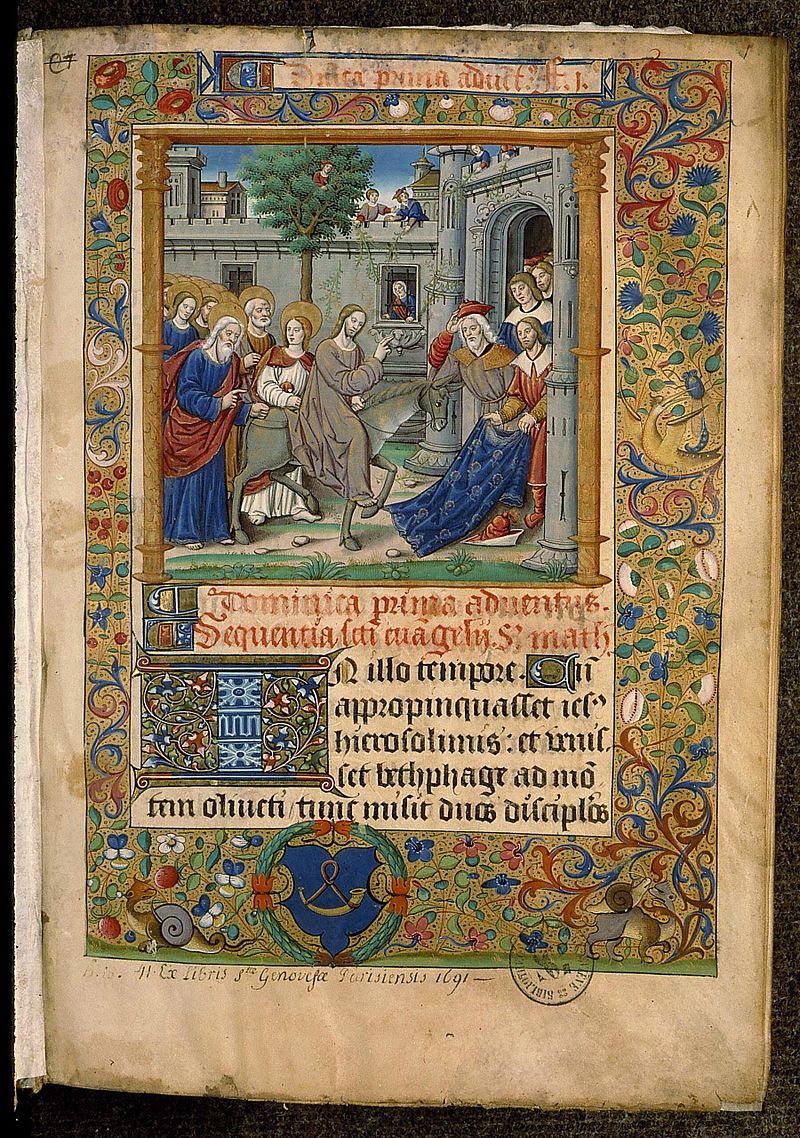 Dnica prima aduēt. F. 1.
Dominica prima aduentus.
Sequentia scti euāgelii. S. math
IN illo tempore. Cū
appropinquasset iesꝰ
hierosolimis: et venis
set bethphage ad mō
tem oliueti, tunc misit duos discipl̄os
41 Ex Libris Stæ Genovefæ Parisiensis 1691